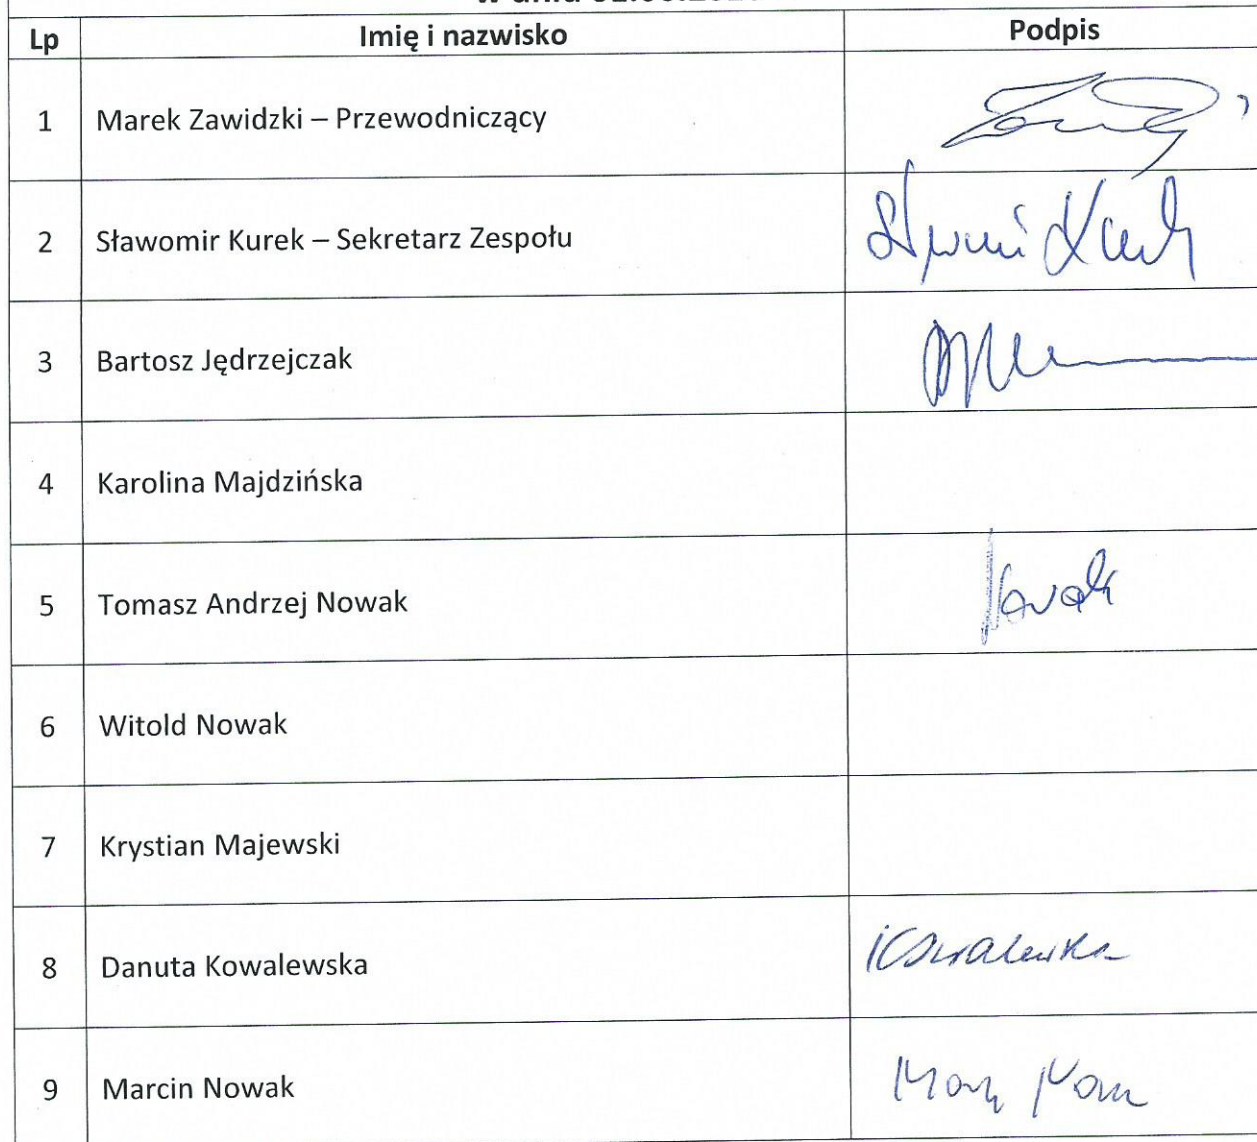 Lp Imię i nazwisko Podpis
1 Marek Zawidzki – Przewodniczący
2 Sławomir Kurek – Sekretarz Zespołu
3 Bartosz Jędrzejczak
4 Karolina Majdzińska
5 Tomasz Andrzej Nowak Nowak
6 Witold Nowak
7 Krystian Majewski
8 Danuta Kowalewska Kowalewska
9 Marcin Nowak